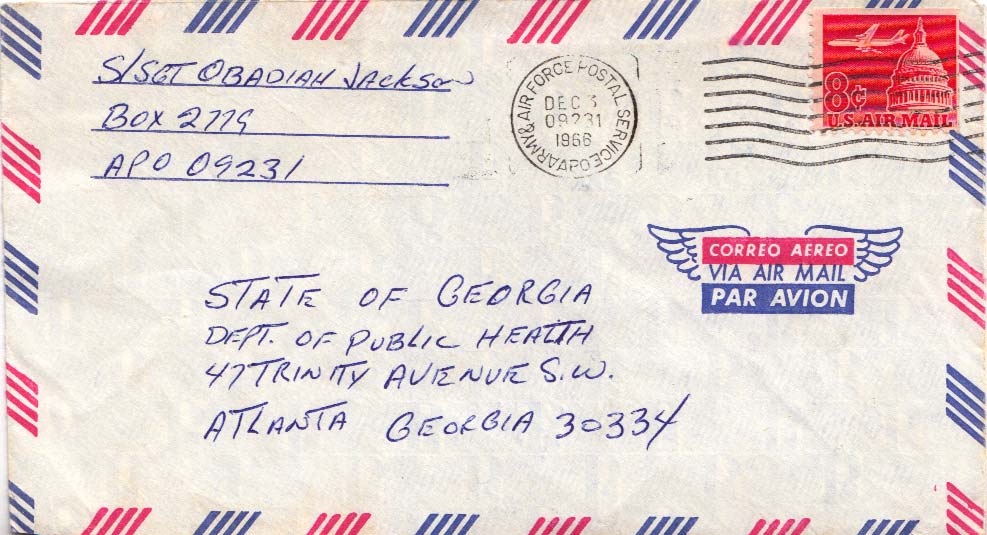 S/SGT OBADIAH JACKSON
BOX 2779
APO 09231
ARMY & AIR FORCE POSTAL SERVICE
APO
DEC 3
09231
1966
8¢
U.S. AIR MAIL
CORREO AEREO
VIA AIR MAIL
PAR AVION
STATE OF GEORGIA
DEPT. OF PUBLIC HEALTH
47 TRINITY AVENUE S.W.
ATLANTA GEORGIA 30334